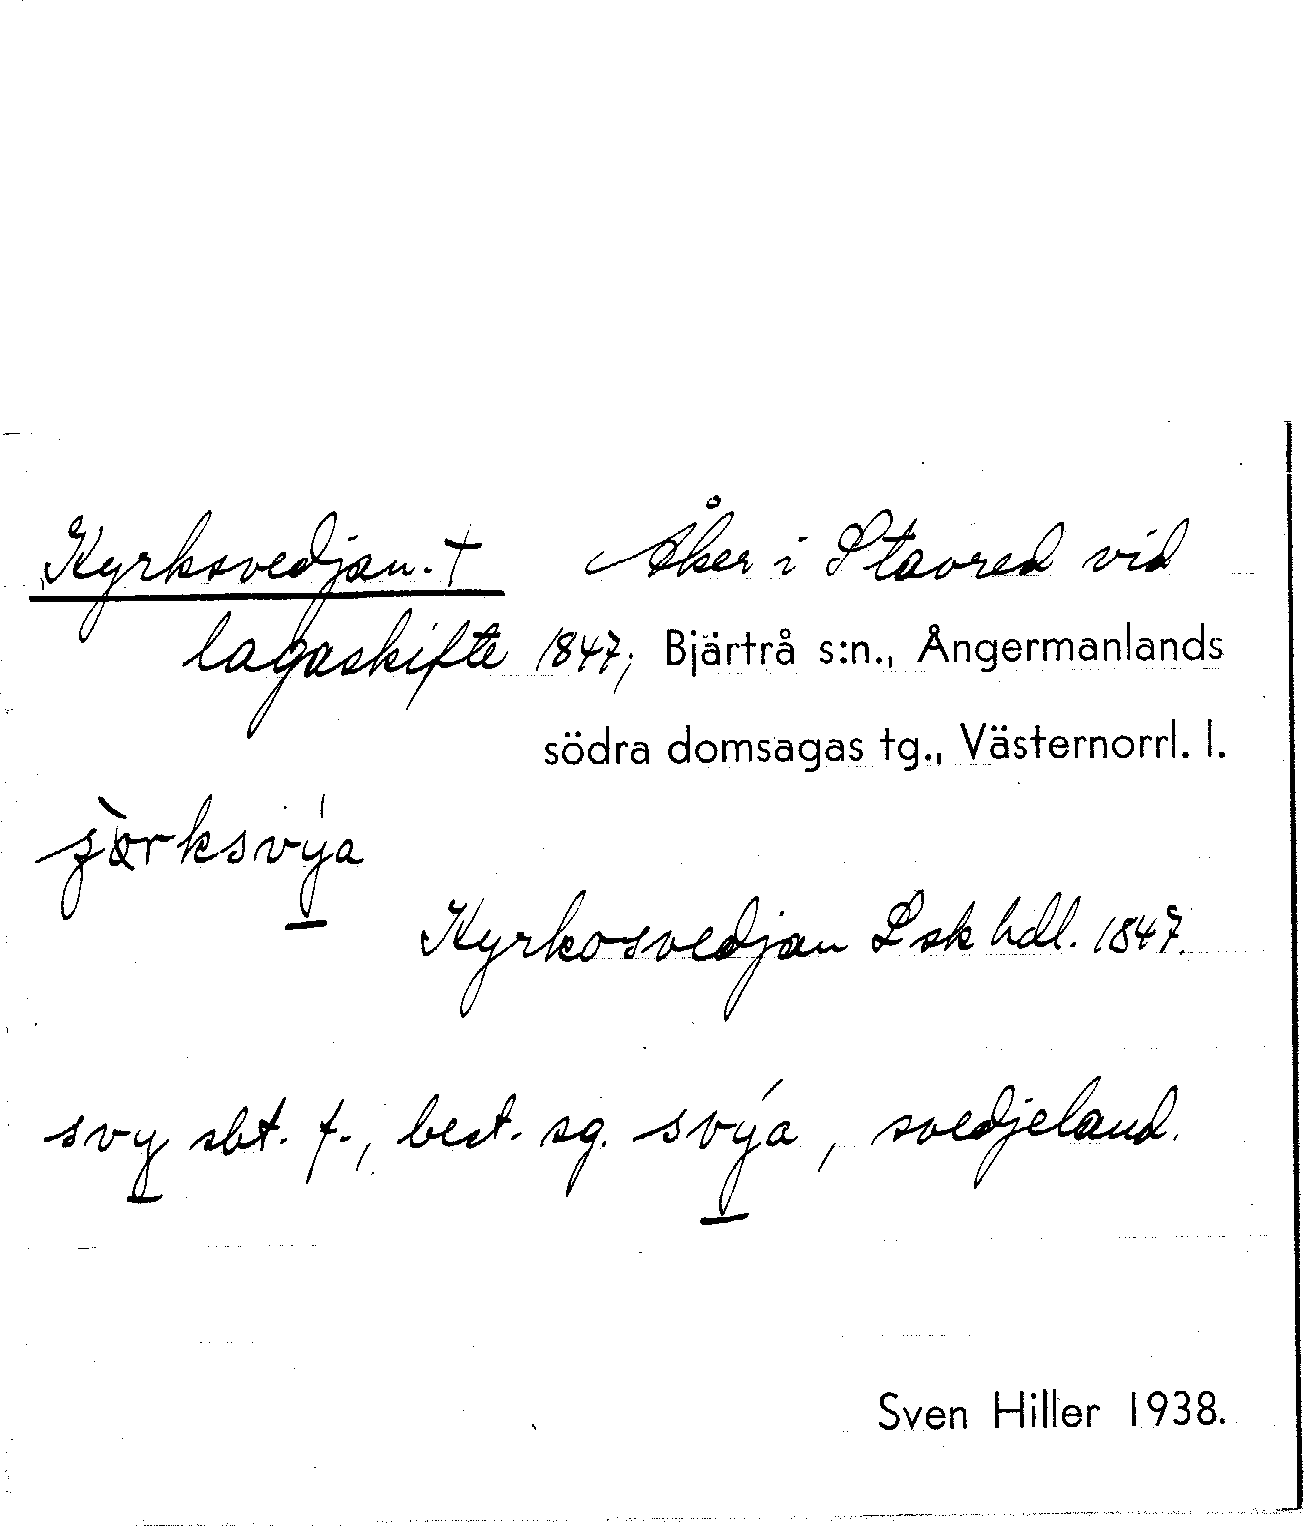 Kyrksvedjan. † Åker i Stavred vid
lagaskifte 1847; Bjärtrå s:n., Ångermanlands
södra domsagas tg., Västernorrl. l.
Kyrkosvedjan Lsk hdl. 1847.
svy sbt. f., best. sg. svýa, svedjeland.
Sven Hiller 1938.